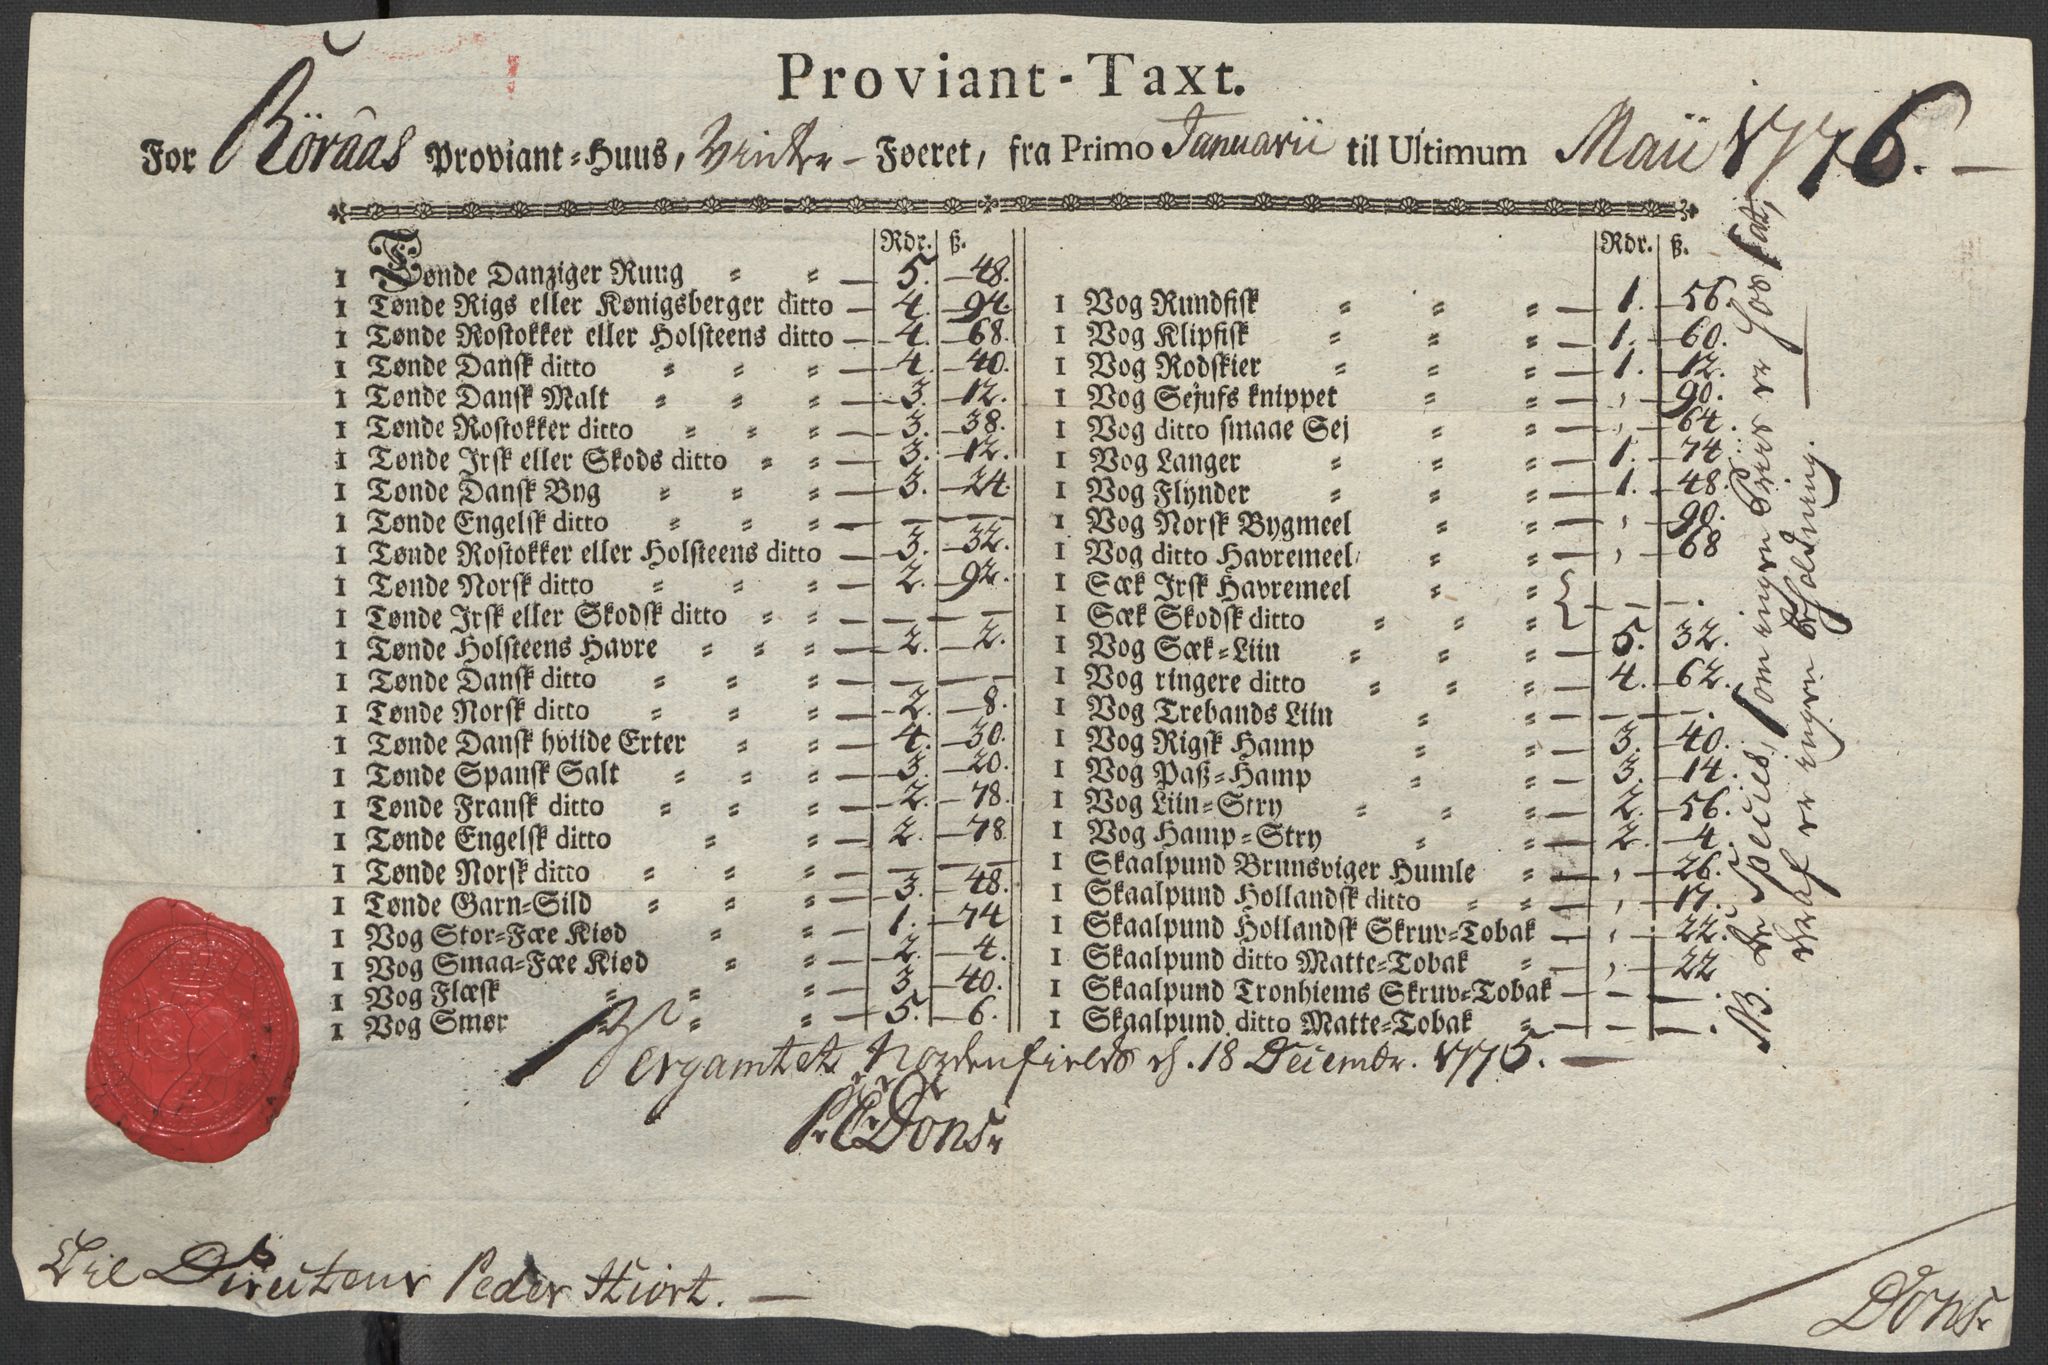 Proviant-Taxt.
For Röraas Proviant-Huus, Vinter-Foeret, fra Primo Januarii til Ultimum Maii 1776.
Rdr. ß.
1 Tønde Danziger Ruug 5. 48.
1 Tønde Rigs eller Kønigsberger ditto 4. 94.
1 Tønde Rostokker eller Holsteens ditto 4. 68.
1 Tønde Dansk ditto 4. 40.
1 Tønde Dansk Malt 3. 12.
1 Tønde Rostokker ditto 3. 38.
1 Tønde Irsk eller Skods ditto 3. 12.
1 Tønde Dansk Byg 3. 24.
1 Tønde Engelsk ditto — —
1 Tønde Rostokker eller Holsteens ditto 3. 32.
1 Tønde Norsk ditto 2. 92.
1 Tønde Irsk eller Skodsk ditto — —
1 Tønde Holsteens Havre 2. 2.
1 Tønde Dansk ditto — —
1 Tønde Norsk ditto 2. 8.
1 Tønde Dansk hviide Erter 4. 30.
1 Tønde Spansk Salt 3. 20.
1 Tønde Fransk ditto 2. 78.
1 Tønde Engelsk ditto 2. 78.
1 Tønde Norsk ditto — —
1 Tønde Garn-Sild 3. 48.
1 Vog Stor-Fæe Kiød 1. 74
1 Vog Smaa-Fæe Kiød 2. 4.
1 Vog Flæsk 3. 40.
1 Vog Smør 5. 6.
Rdr. ß.
1 Vog Rundfisk 1. 56.
1 Vog Klipfisk 1. 60.
1 Vog Rodskier 1. 12.
1 Vog Sejufs knippet , 90.
1 Vog ditto smaae Sej , 64.
1 Vog Langer 1. 74
1 Vog Flynder 1. 48.
1 Vog Norsk Bygmeel , 90.
1 Vog ditto Havremeel , 68
1 Sæk Irsk Havremeel
1 Sæk Skodsk ditto } — —.
1 Vog Sæk-Liin 5. 32.
1 Vog ringere ditto 4. 62.
1 Vog Trebands Liin — —.
1 Vog Rigsk Hamp 3. 40.
1 Vog Paß-Hamp 3. 14.
1 Vog Liin-Stry 2. 56.
1 Vog Hamp-Stry 2. 4.
1 Skaalpund Brunsviger Humle , 26.
1 Skaalpund Hollandsk ditto , 17.
1 Skaalpund Hollandsk Skruv-Tobak , 22.
1 Skaalpund ditto Matte-Tobak , 22
1 Skaalpund Tronhiems Skruv-Tobak — —
1 Skaalpund ditto Matte-Tobak — —.
NB. De Species, som ingen Priis er hos sat,
deraf er ingen Beholdning.
Bergamtet Nordenfields d. 18 Decembr. 1775.
P. E. Dons.
Til Directeur Peder Hiort.
Dons.